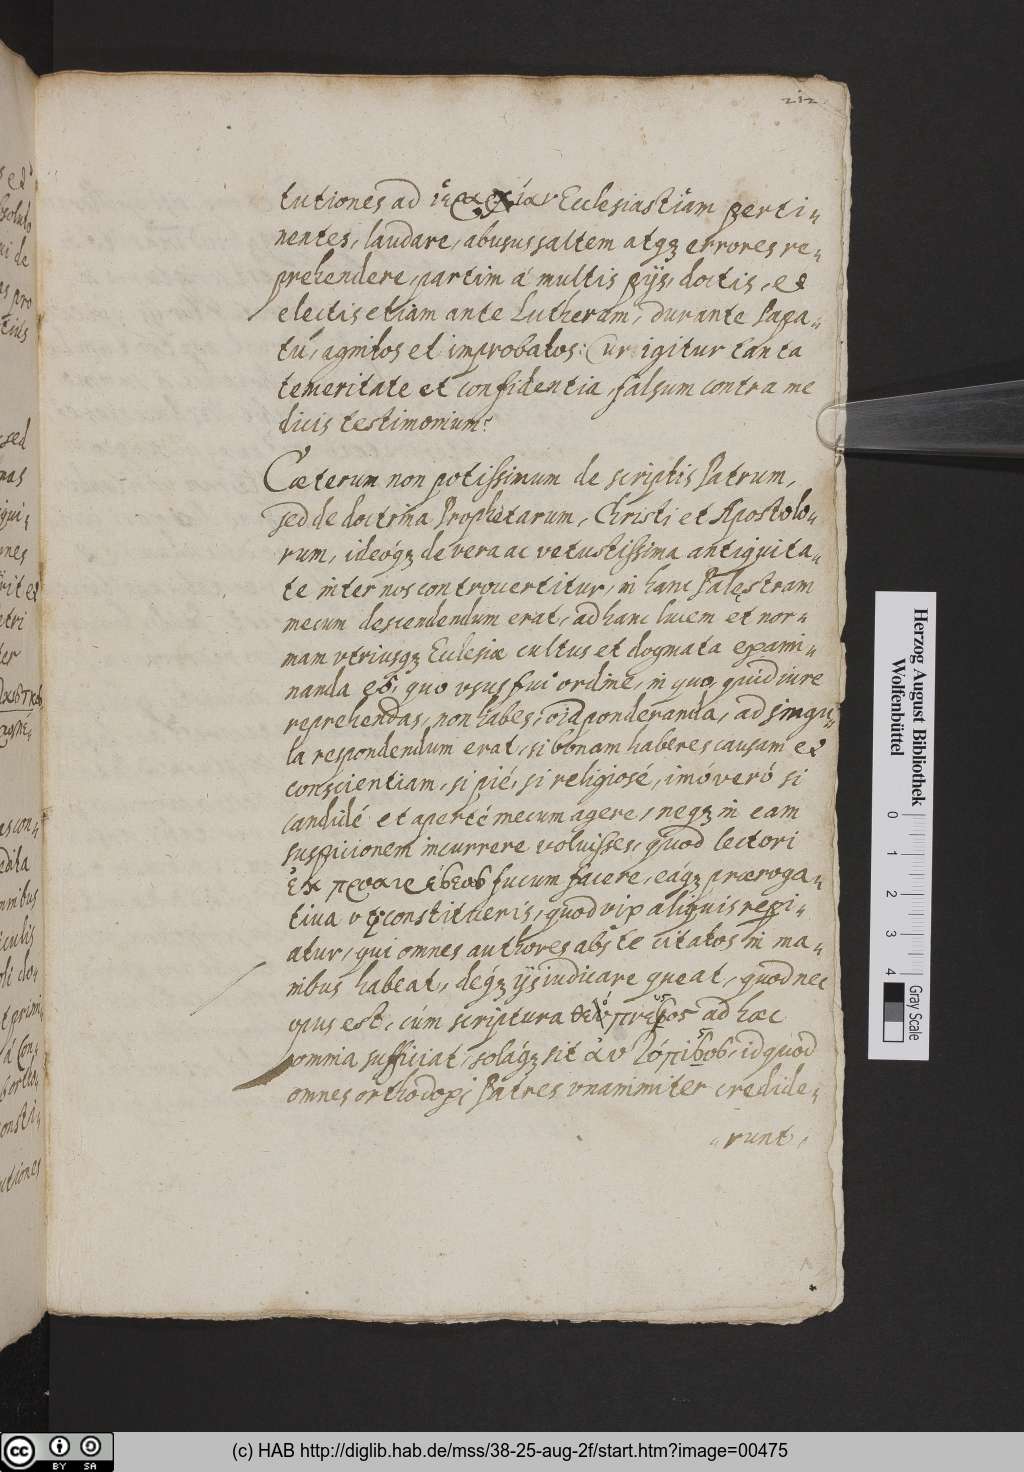 212
tutiones ad ἱεραρχίαν Ecclesiasticam perti-
nentes, laudare, abusus saltem atq3 errores re-
prehendere, partim á multis pijs, doctis, et
electis etiam ante Lutherum, durante Papa-
tu, agnitos et improbatos: Cur igitur tanta
temeritate et confidentia, falsum contra me
dicis testimonium?
Cæterum non potissimum de scriptis Patrum,
sed de doctrina Prophetarum, Christi et Apostolo-
rum, ideóq3 de vera ac vetustissima antiquita-
te inter nos controvertitur, in hanc Palęstram
mecum descendendum erat, ad hanc lucem et nor-
mam vtriusq3 Ecclesiæ cultus et dogmata exami-
nanda eó, quo vsus fui ordine, in quo, quid iure
reprehendas, non habes, ponderanda, ad singu-
la respondendum erat, si bonam haberes causam et
conscientiam, si pié, si religiosé, imó veró si
candidé et aperté mecum agere, neq3 in eam
suspicionem incurrere voluisses, quod lectori
fucum facere, eáq3 præroga-
tiua vti constitueris, quod vix aliquis repi-
atur, qui omnes authores abs te citatos in ma-
nibus habeat, déq3 ijs iudicare queat, quod nec
opus est, cúm scriptura θεόπνευστος ad hæc
omnia sufficiat, soláq3 sit ἀυτόπιστος, id quod
omnes orthodoxi Patres vnanimiter credide-
-runt,
Herzog August Bibliothek
Wolfenbüttel
0 1 2 3 4
Gray Scale
cc BY SA
(c) HAB http://diglib.hab.de/mss/38-25-aug-2f/start.htm?image=00475